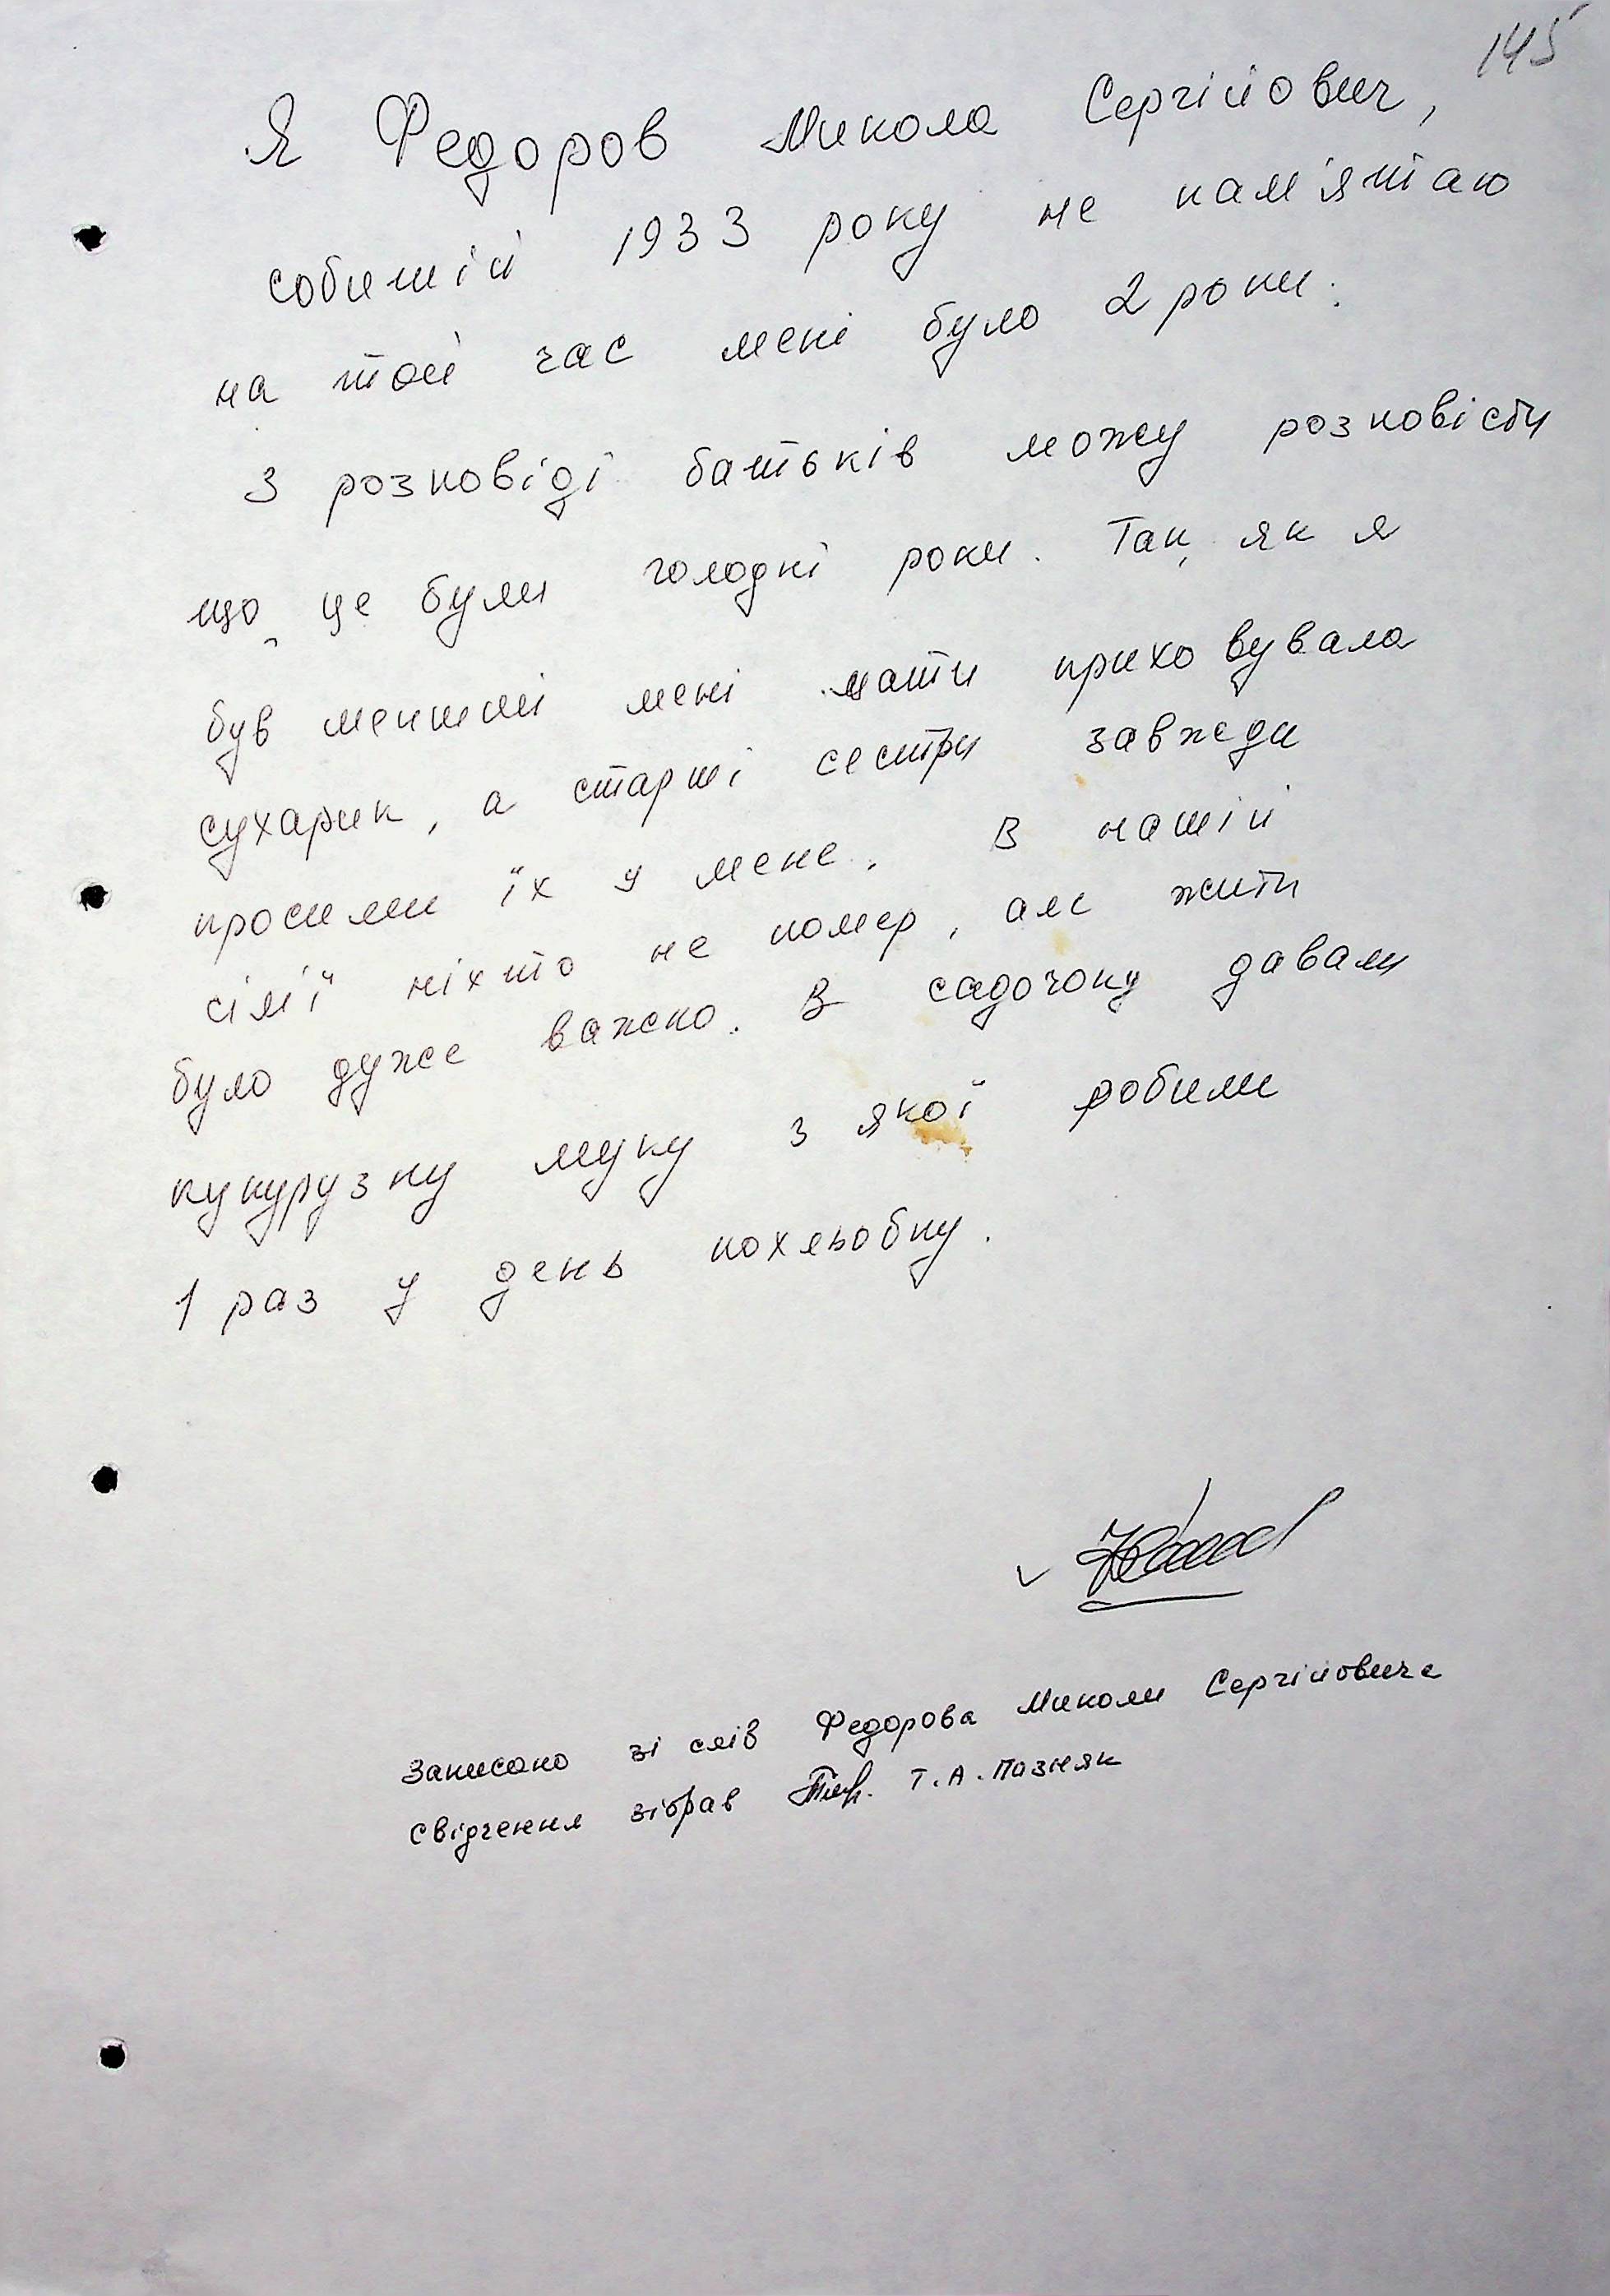 145
Я Федоров Микола Сергійович,
событій 1933 року не пам'ятаю
на той час мені було 2 роки.
З розповіді батьків можу розповісти
що це були голодні роки. Так, як я
був менший мені мати приховувала
сухарик, а старші сестри завжди
просили їх у мене. В нашій
сім'ї ніхто не помер, але жити
було дуже важко. В садочку давали
кукурузну муку з якої робили
1 раз у день похльобку.
Записано зі слів Федорова Миколи Сергійовича
свідчення зібрав Т.А. Позняк